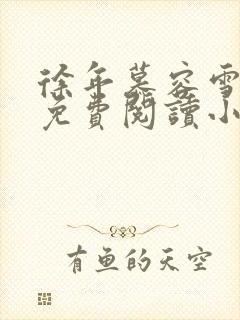 徐年慕容雪
免費閱讀小
有魚的天空